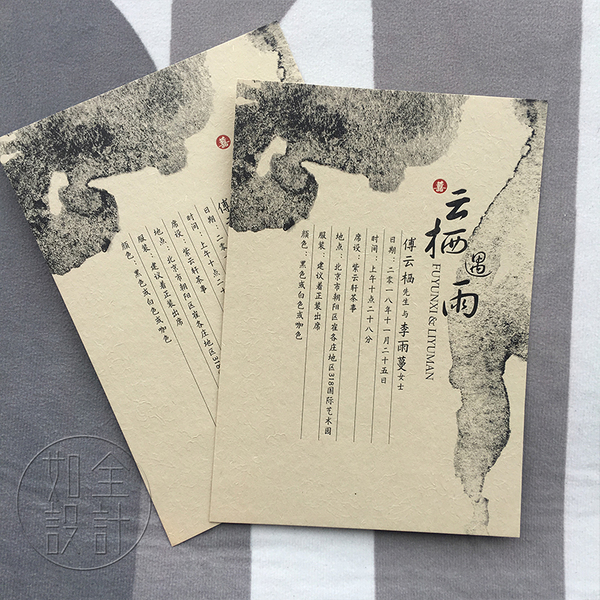 囍
云栖遇雨
FUYUNXI & LIYUMAN
傅云栖 先生 与 李雨蔓 女士
日期：二零一八年十一月二十五日
时间：上午十点二十八分
席设：紫云轩茶事
地点：北京市朝阳区崔各庄地区318国际艺术园
服装：建议着正装出席
颜色：黑色或白色或咖色
囍
傅
日期：二零
时间：上午十点二十
席设：紫云轩茶事
地点：北京市朝阳区崔各庄地区318
服装：建议着正装出席
颜色：黑色或白色或咖色
如全
設計